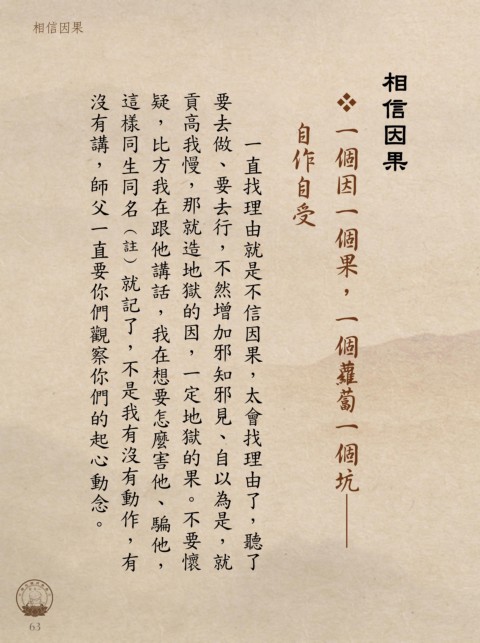 相信因果
相信因果
❖一個因一個果，一個蘿蔔一個坑——
自作自受
一直找理由就是不信因果，太會找理由了，聽了
要去做、要去行，不然增加邪知邪見、自以為是，就
貢高我慢，那就造地獄的因，一定地獄的果。不要懷
疑，比方我在跟他講話，我在想要怎麼害他、騙他，
這樣同生同名（註）就記了，不是我有沒有動作，有
沒有講，師父一直要你們觀察你們的起心動念。
63